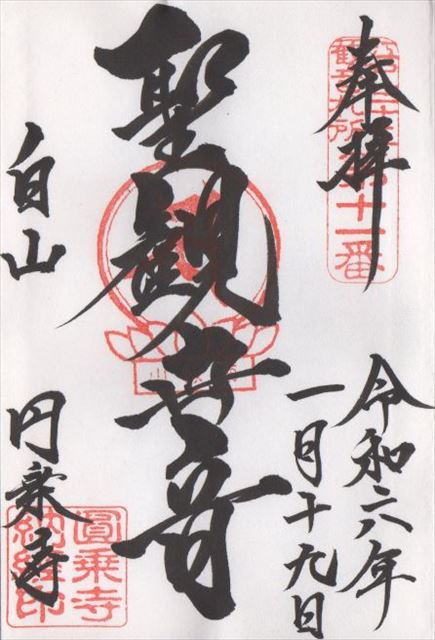 奉拝
第十一番
令和六年
一月十九日
聖観世音
白山
円乗寺
圓乗寺
納経印